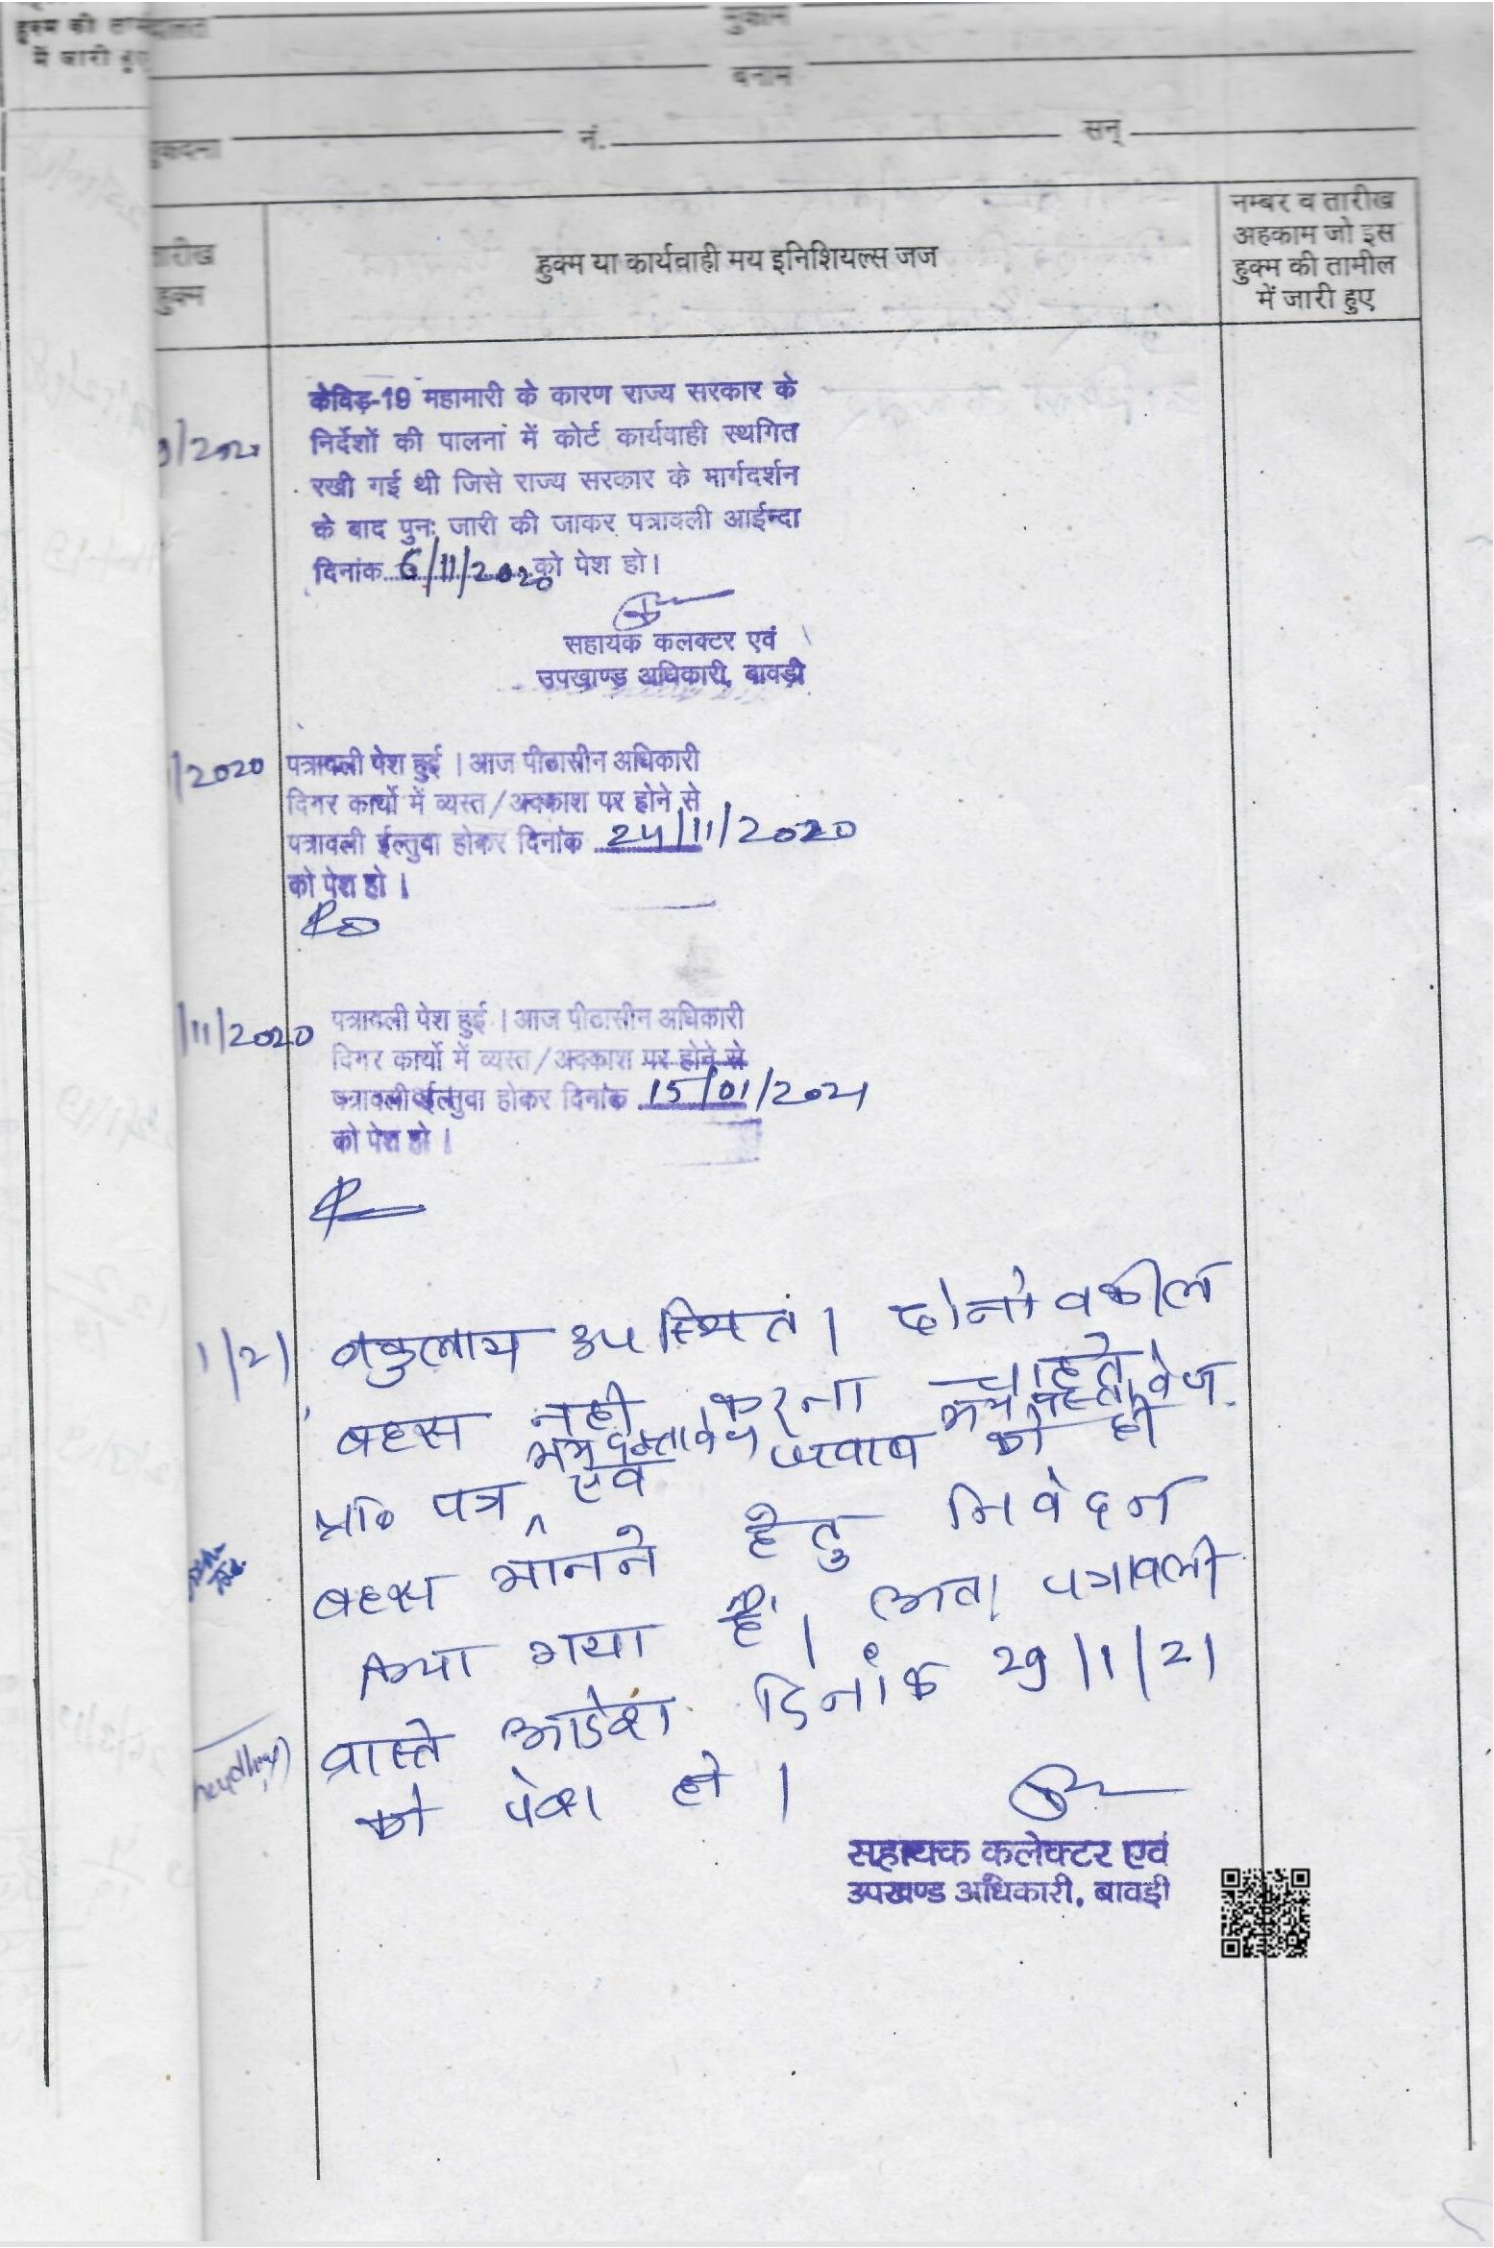 हुक्म की
में जारी हुए
मुकाम
बनाम
नं. सन्
तारीख
हुक्म
हुक्म या कार्यवाही मय इनिशियल्स जज
नम्बर व तारीख
अहकाम जो इस
हुक्म की तामील
में जारी हुए
केविड़-19 महामारी के कारण राज्य सरकार के
निर्देशों की पालना में कोर्ट कार्यवाही स्थगित
रखी गई थी जिसे राज्य सरकार के मार्गदर्शन
के बाद पुनः जारी की जाकर पत्रावली आईन्दा
दिनांक 6/11/2020 को पेश हो।
सहायक कलक्टर एवं
उपखाण्ड अधिकारी, बावड़ी
/2020
पत्रावली पेश हुई । आज पीठासीन अधिकारी
दिगर कार्यो में व्यस्त/अवकाश पर होने से
पत्रावली ईल्तुवा होकर दिनांक 24/11/2020
को पेश हो ।
/11/2020
पत्रावली पेश हुई । आज पीठासीन अधिकारी
दिगर कार्यो में व्यस्त/अवकाश पर होने से
पत्रावली ईल्तुवा होकर दिनांक 15/01/2021
को पेश हो ।
1/21 वकुलाय उपस्थित। दोनो वकील
बहस नही करना चाहते।
मय दस्तावेज मय दस्तावेज
प्रा० पत्र एवं जवाब को ही
बहस मानने हेतु निवेदन
किया गया है। अतः पत्रावली
वास्ते आदेश दिनांक 29/1/21
को पेश हो।
सहायक कलेक्टर एवं
उपखण्ड अधिकारी, बावड़ी